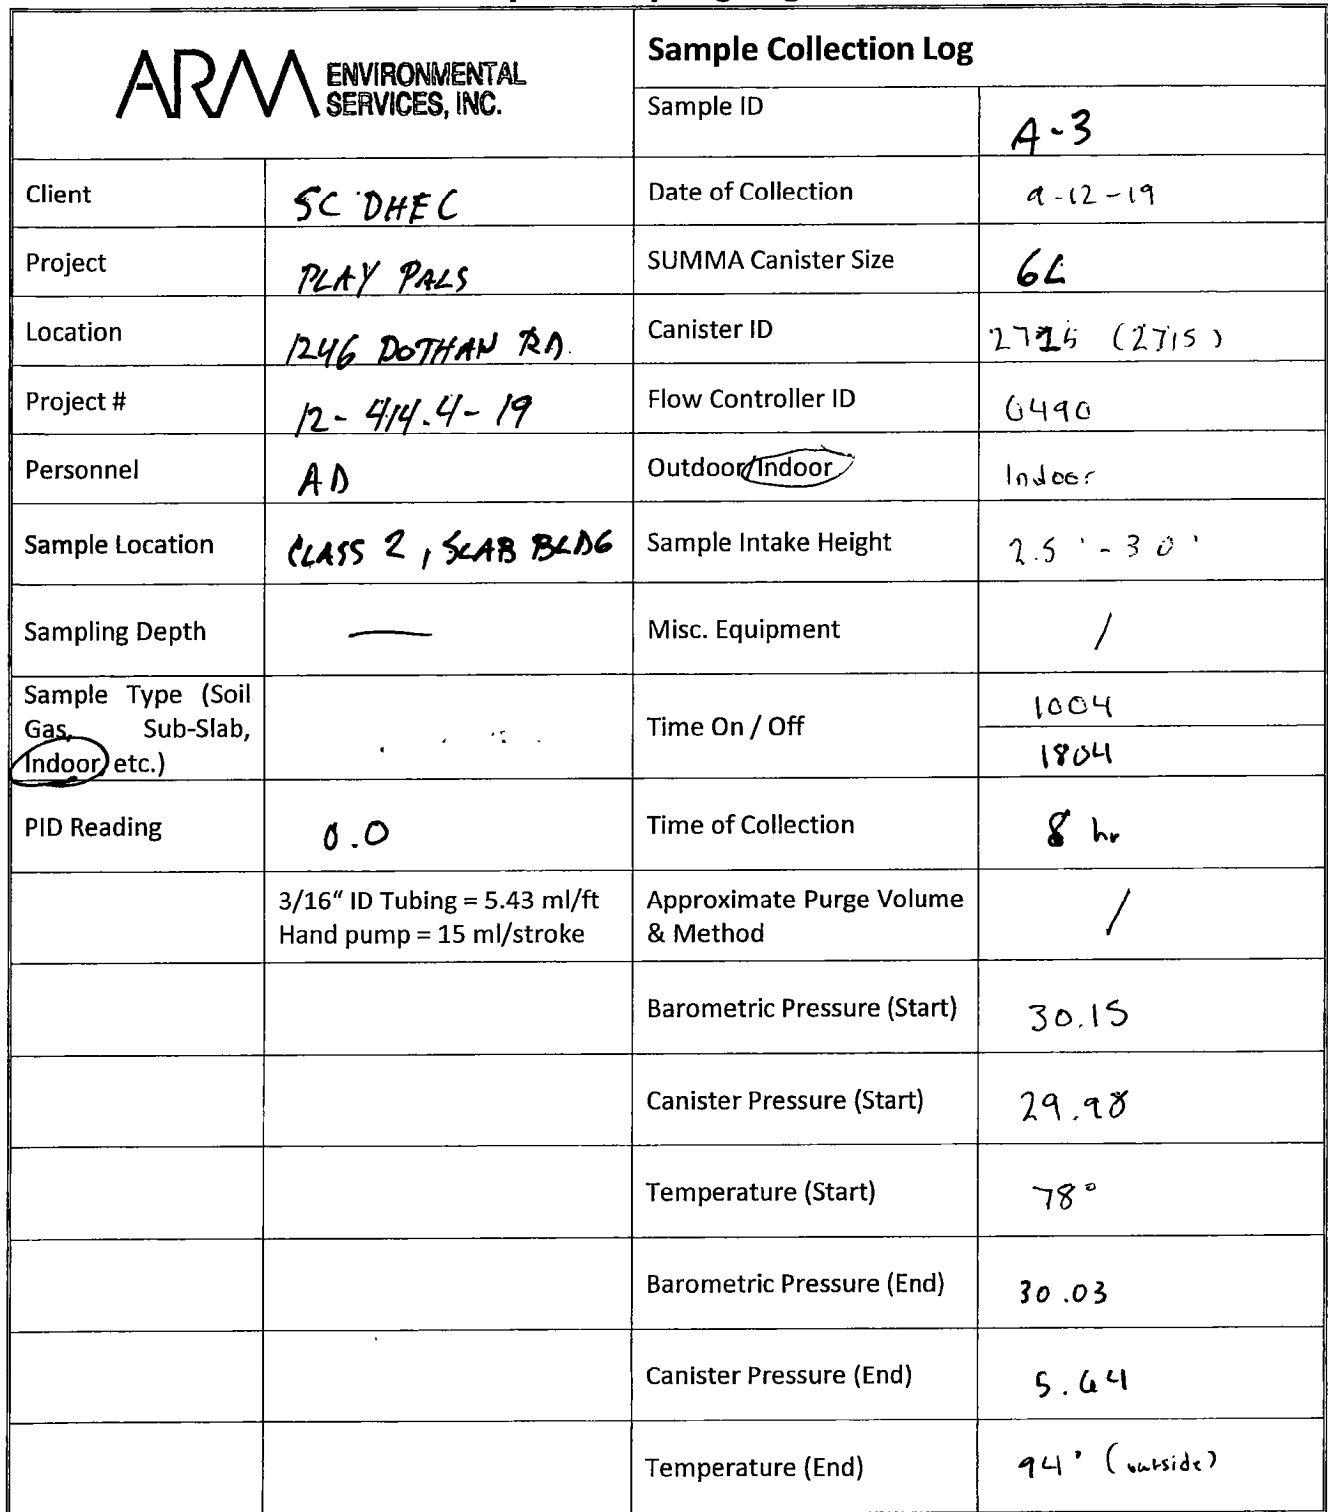 ARM ENVIRONMENTAL
SERVICES, INC.
Sample Collection Log
Sample ID A-3
Client SC DHEC
Date of Collection 9-12-19
Project PLAY PALS
SUMMA Canister Size 6L
Location 1246 DOTHAN RD.
Canister ID 2715 (2715)
Project # 12-414.4-19
Flow Controller ID 0490
Personnel AD
Outdoor/Indoor Indoor
Sample Location CLASS 2, SLAB BLDG
Sample Intake Height 2.5'-30'
Sampling Depth —
Misc. Equipment /
Sample Type (Soil
Gas, Sub-Slab,
Indoor, etc.)
Time On / Off 1004
1804
PID Reading 0.0
Time of Collection 8 hr
3/16" ID Tubing = 5.43 ml/ft
Hand pump = 15 ml/stroke
Approximate Purge Volume
& Method /
Barometric Pressure (Start) 30.15
Canister Pressure (Start) 29.98
Temperature (Start) 78°
Barometric Pressure (End) 30.03
Canister Pressure (End) 5.64
Temperature (End) 94° (outside)